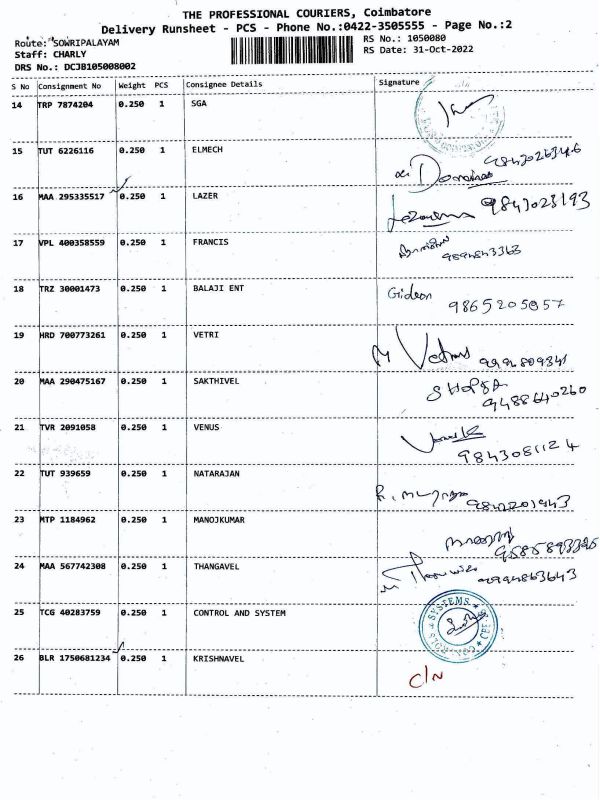 THE PROFESSIONAL COURIERS, Coimbatore
Delivery Runsheet - PCS - Phone No.:0422-3505555 - Page No.:2
Route: SOWRIPALAYAM
RS No.: 1050080
Staff: CHARLY
RS Date: 31-Oct-2022
DRS No.: DCJB105008002
S No Consignment No Weight PCS Consignee Details Signature
14 TRP 7874204 0.250 1 SGA
15 TUT 6226116 0.250 1 ELMECH
16 MAA 295335517 0.250 1 LAZER 9843023193
17 VPL 400358559 0.250 1 FRANCIS
18 TRZ 30001473 0.250 1 BALAJI ENT Gideon
9865205057
19 HRD 700773261 0.250 1 VETRI
20 MAA 290475167 0.250 1 SAKTHIVEL
9488640260
21 TVR 2091058 0.250 1 VENUS
9843081124
22 TUT 939659 0.250 1 NATARAJAN
23 MTP 1184962 0.250 1 MANOJKUMAR
24 MAA 567742308 0.250 1 THANGAVEL
9994863643
25 TCG 40283759 0.250 1 CONTROL AND SYSTEM
SYSTEMS
26 BLR 1750681234 0.250 1 KRISHNAVEL
C/N